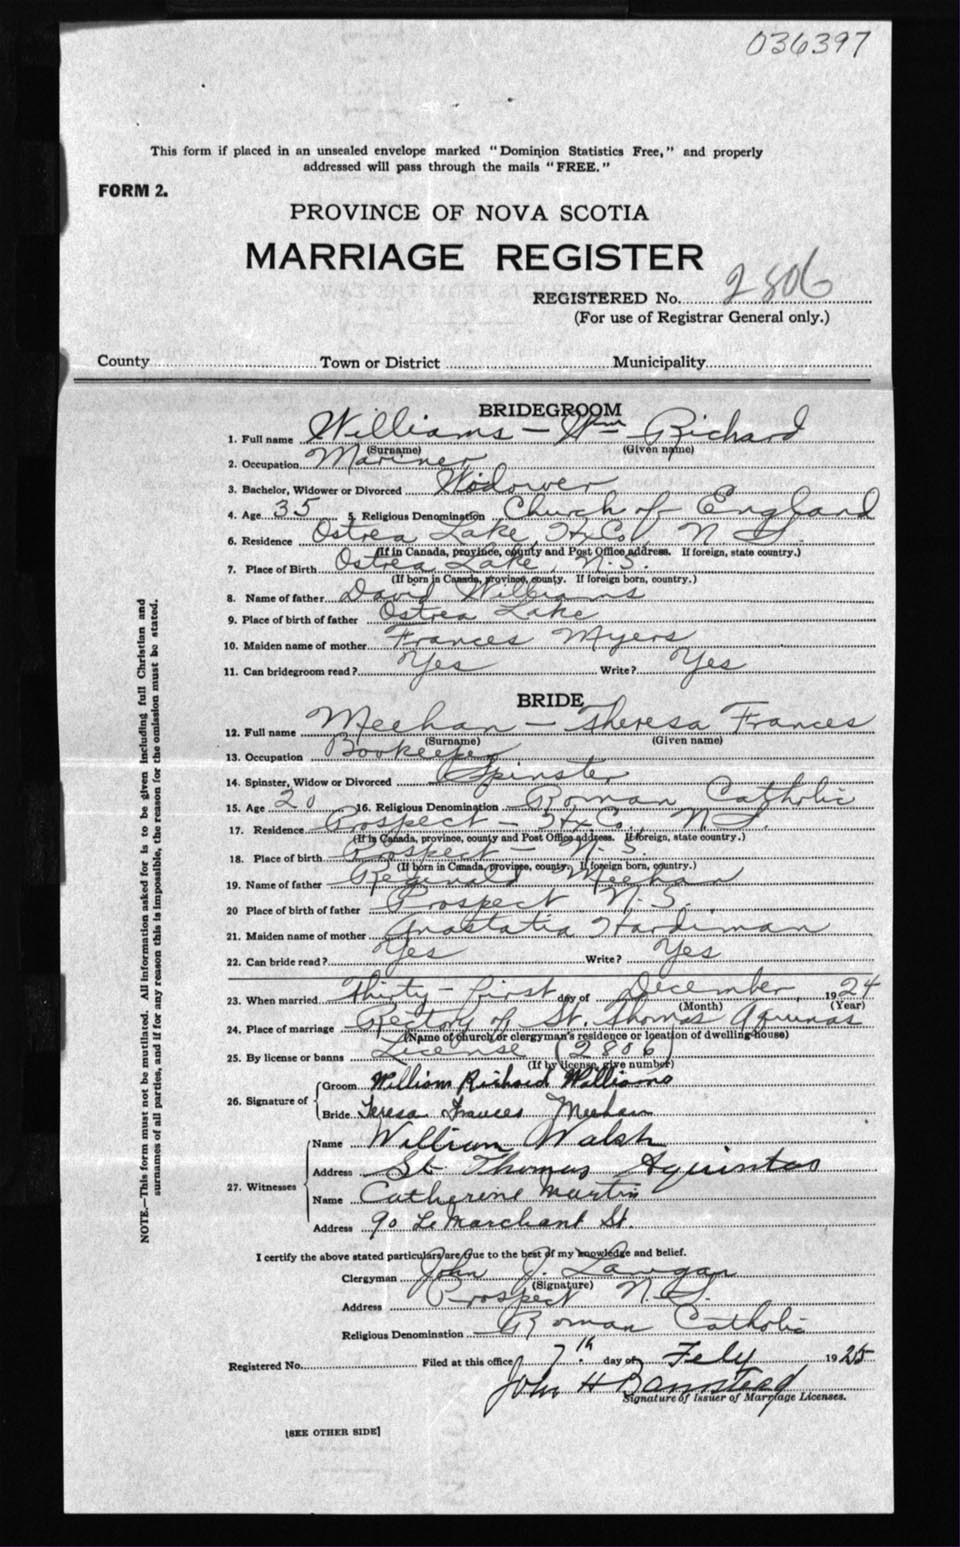 036397
This form if placed in an unsealed envelope marked "Dominion Statistics Free," and properly
addressed will pass through the mails "FREE."
FORM 2.
PROVINCE OF NOVA SCOTIA
MARRIAGE REGISTER
REGISTERED No. 2806
(For use of Registrar General only.)
County Town or District Municipality
BRIDEGROOM
1. Full name Williams - Wm Richard
(Surname) (Given name)
2. Occupation Mariner
3. Bachelor, Widower or Divorced Widower
4. Age 35 5. Religious Denomination Church of England
6. Residence Ostrea Lake, Hx Co, N.S.
(If in Canada, province, county and Post Office address. If foreign, state country.)
7. Place of Birth Ostrea Lake, N.S.
(If born in Canada, province, county. If foreign born, country.)
8. Name of father David Williams
9. Place of birth of father Ostrea Lake
10. Maiden name of mother Frances Myers
11. Can bridegroom read? Yes Write? Yes
BRIDE
12. Full name Meehan - Theresa Frances
(Surname) (Given name)
13. Occupation Bookeeper
14. Spinster, Widow or Divorced Spinster
15. Age 20 16. Religious Denomination Roman Catholic
17. Residence Prospect - Hx Co, N.S.
(If in Canada, province, county and Post Office address. If foreign, state country.)
18. Place of birth Prospect - N.S.
(If born in Canada, province, county. If foreign born, country.)
19. Name of father Reginald Meehan
20 Place of birth of father Prospect N.S.
21. Maiden name of mother Anastatia Hardiman
22. Can bride read? Yes Write? Yes
23. When married Thirty-first day of December, 1924
(Month) (Year)
24. Place of marriage Rectory of St. Thomas Aquinas
(Name of church or clergyman's residence or location of dwelling-house)
25. By license or banns License (2806)
(If by license, give number)
26. Signature of Groom William Richard Williams
Bride Teresa Frances Meehan
27. Witnesses Name William Walsh
Address St Thomas Aquintas
Name Catherine Martin
Address 90 LeMarchant St.
I certify the above stated particulars are true to the best of my knowledge and belief.
Clergyman John J. Lanigan
(Signature)
Address Prospect N.S.
Religious Denomination Roman Catholic
Registered No. Filed at this office 7th day of Feby 1925
John H
Signature of Issuer of Marriage Licenses.
[SEE OTHER SIDE]
NOTE.—This form must not be mutilated. All information asked for is to be given including full Christian and
surnames of all parties, and if for any reason this is impossible, the reason for the omission must be stated.